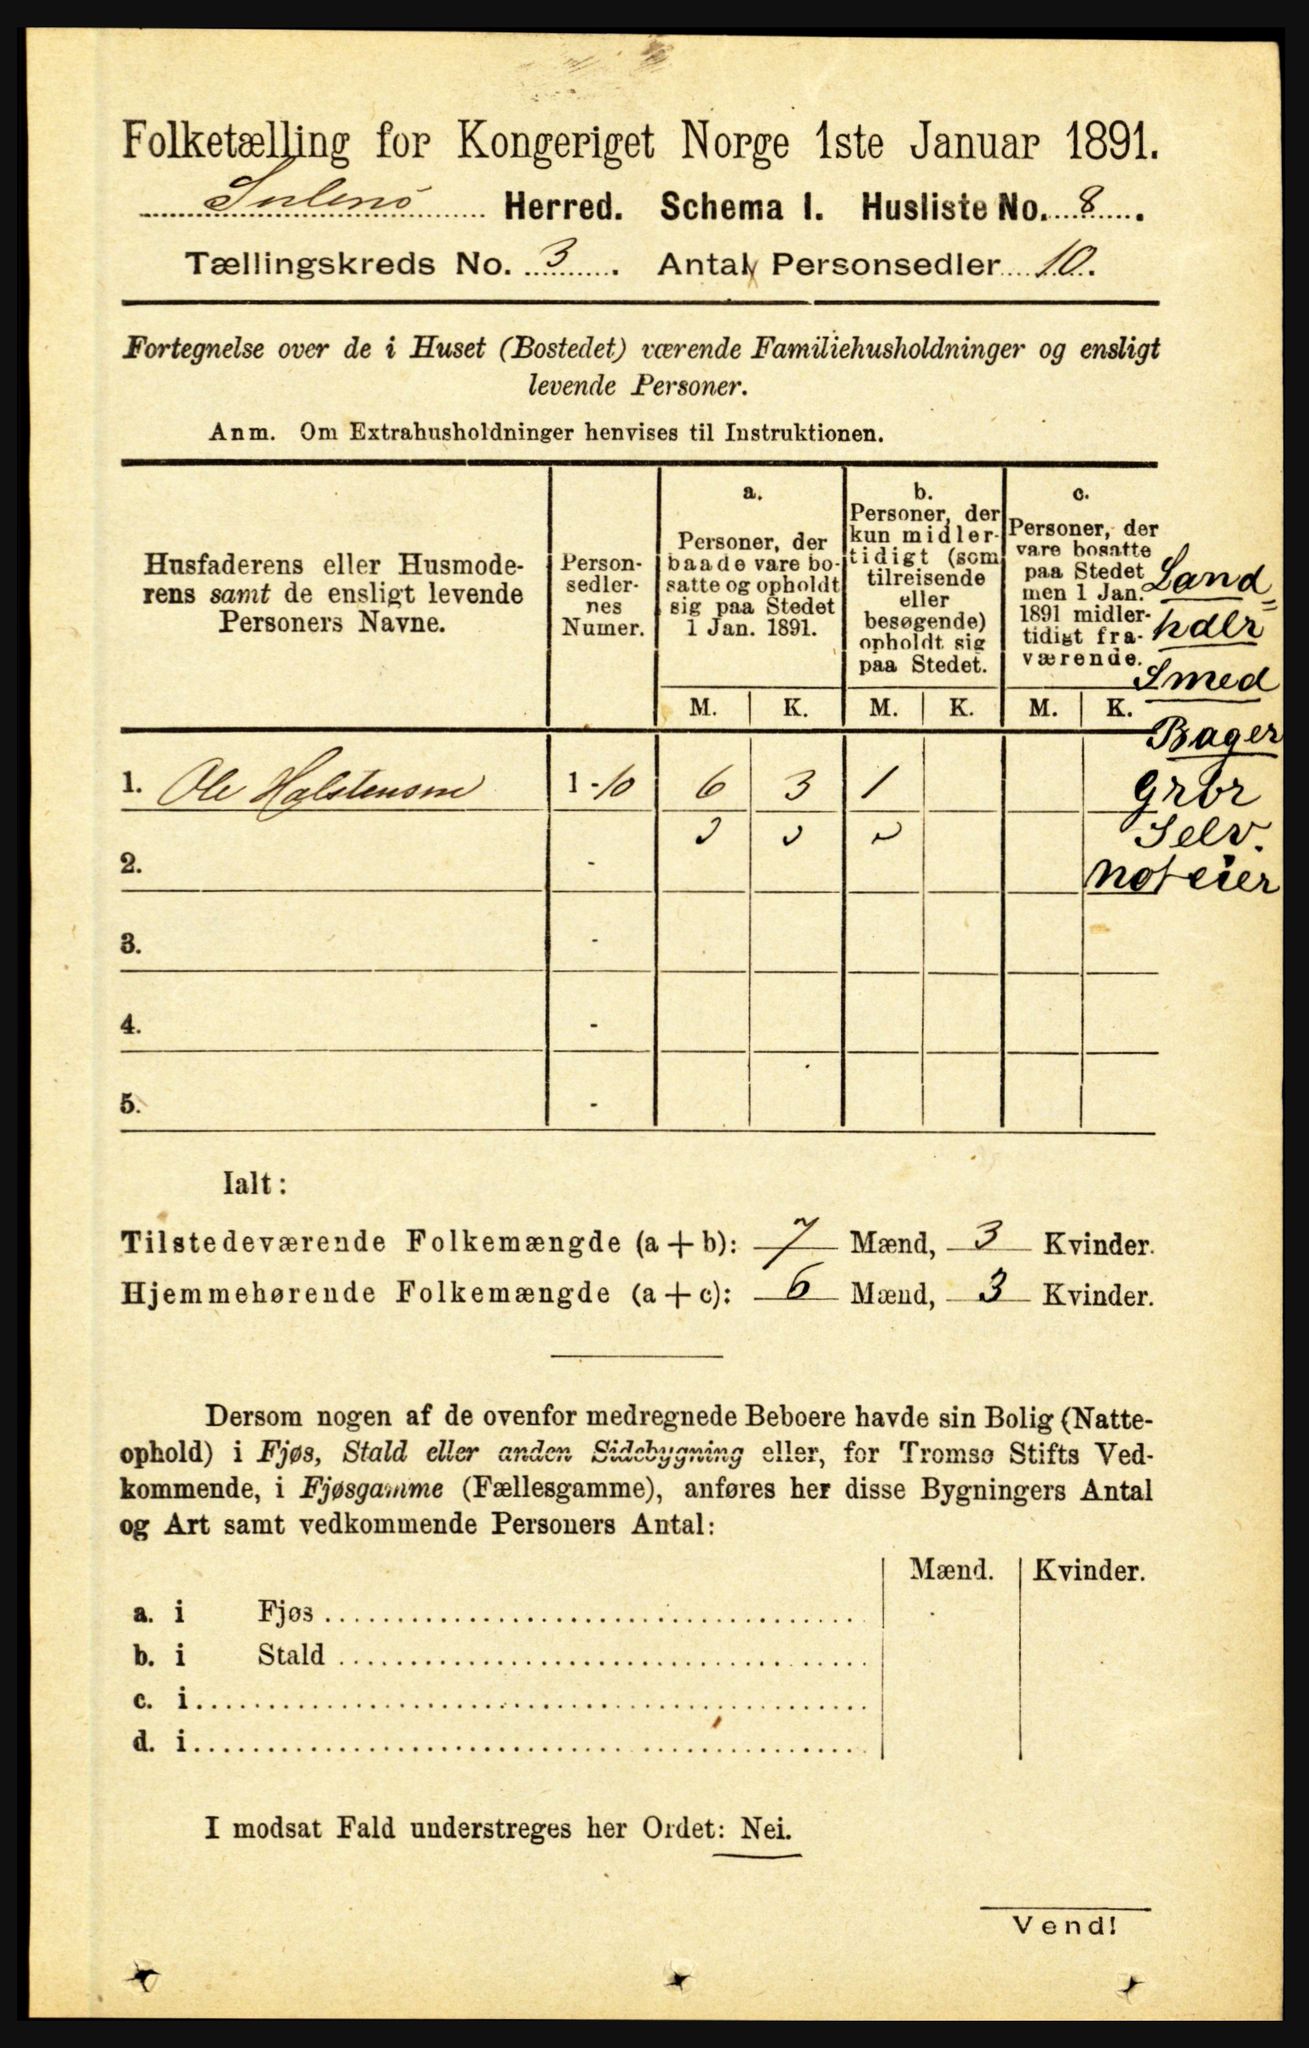 Folketælling for Kongeriget Norge 1ste Januar 1891.
Sulenø Herred. Schema I. Husliste No. 8.
Tællingskreds No. 3. Antal Personsedler 10.
Fortegnelse over de i Huset (Bostedet) værende Familiehusholdninger og ensligt
levende Personer.
Anm. Om Extrahusholdninger henvises til Instruktionen.
Husfaderens eller Husmode-
rens samt de ensligt levende
Personers Navne.
Person-
sedler-
nes
Numer.
a.
Personer, der
baade vare bo-
satte og opholdt
sig paa Stedet
1 Jan. 1891.
b.
Personer, der
kun midler-
tidigt (som
tilreisende
eller
besøgende)
opholdt sig
paa Stedet.
c.
Personer, der
vare bosatte
paa Stedet
men 1 Jan.
1891 midler-
tidigt fra-
værende.
M. K. M. K. M. K.
Land=
hdlr
Smed
Bager
Grbr
Selv.
noteier
1. Ole Halstensen 1-10 6 3 1
2. -
3. -
4. -
5. -
Ialt:
Tilstedeværende Folkemængde (a + b): 7 Mænd, 3 Kvinder.
Hjemmehørende Folkemængde (a + c): 6 Mænd, 3 Kvinder.
Dersom nogen af de ovenfor medregnede Beboere havde sin Bolig (Natte-
ophold) i Fjøs, Stald eller anden Sidebygning eller, for Tromsø Stifts Ved-
kommende, i Fjøsgamme (Fællesgamme), anføres her disse Bygningers Antal
og Art samt vedkommende Personers Antal:
Mænd. Kvinder.
a. i Fjøs
b. i Stald
c. i
d. i
I modsat Fald understreges her Ordet: Nei.
Vend!